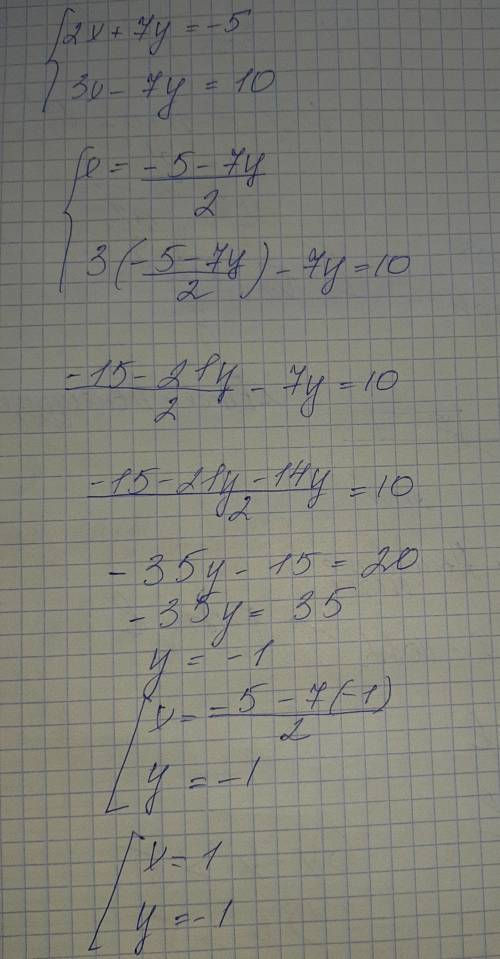 2x + 7y = -5
3x - 7y = 10
x = (-5 - 7y)/2
3((-5 - 7y)/2) - 7y = 10
(-15 - 21y)/2 - 7y = 10
(-15 - 21y - 14y)/2 = 10
- 35y - 15 = 20
- 35y = 35
y = -1
x = (-5 - 7(-1))/2
y = -1
x = 1
y = -1